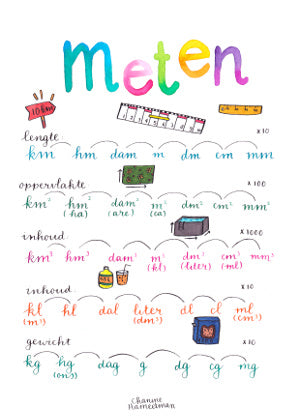 meten
10 km
lengte x10
km hm dam m dm cm mm
oppervlakte x100
km² hm² dam² m² dm² cm² mm²
(ha) (are) (ca)
inhoud x1000
km³ hm³ dam³ m³ dm³ cm³ mm³
(kl) (liter) (ml)
inhoud x10
kl hl dal liter dl cl ml
(m³) (dm³) (cm³)
gewicht x10
kg hg dag g dg cg mg
(ons)
Channe